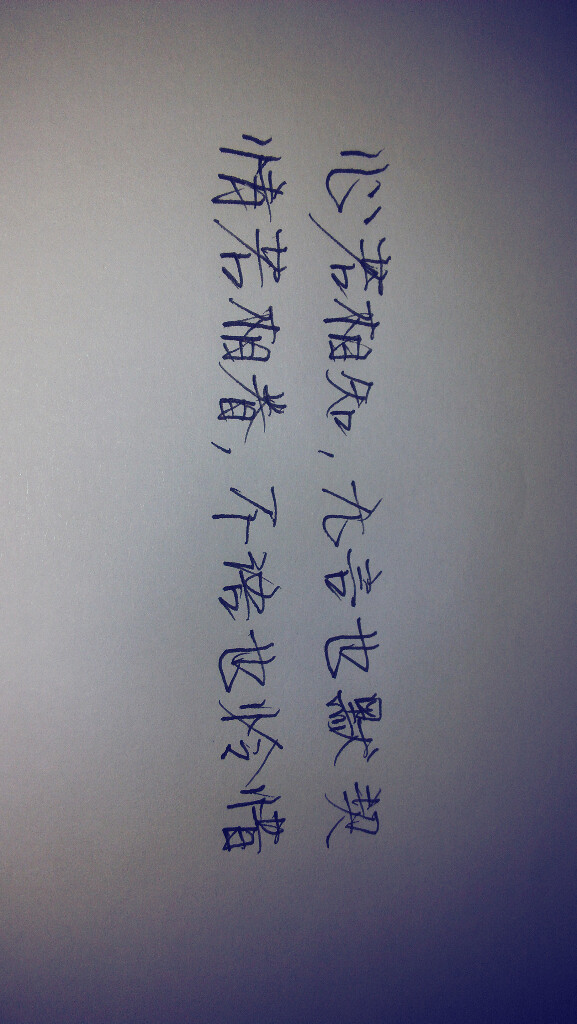 心若相知,无言也默契
情若相眷,不语也怜惜